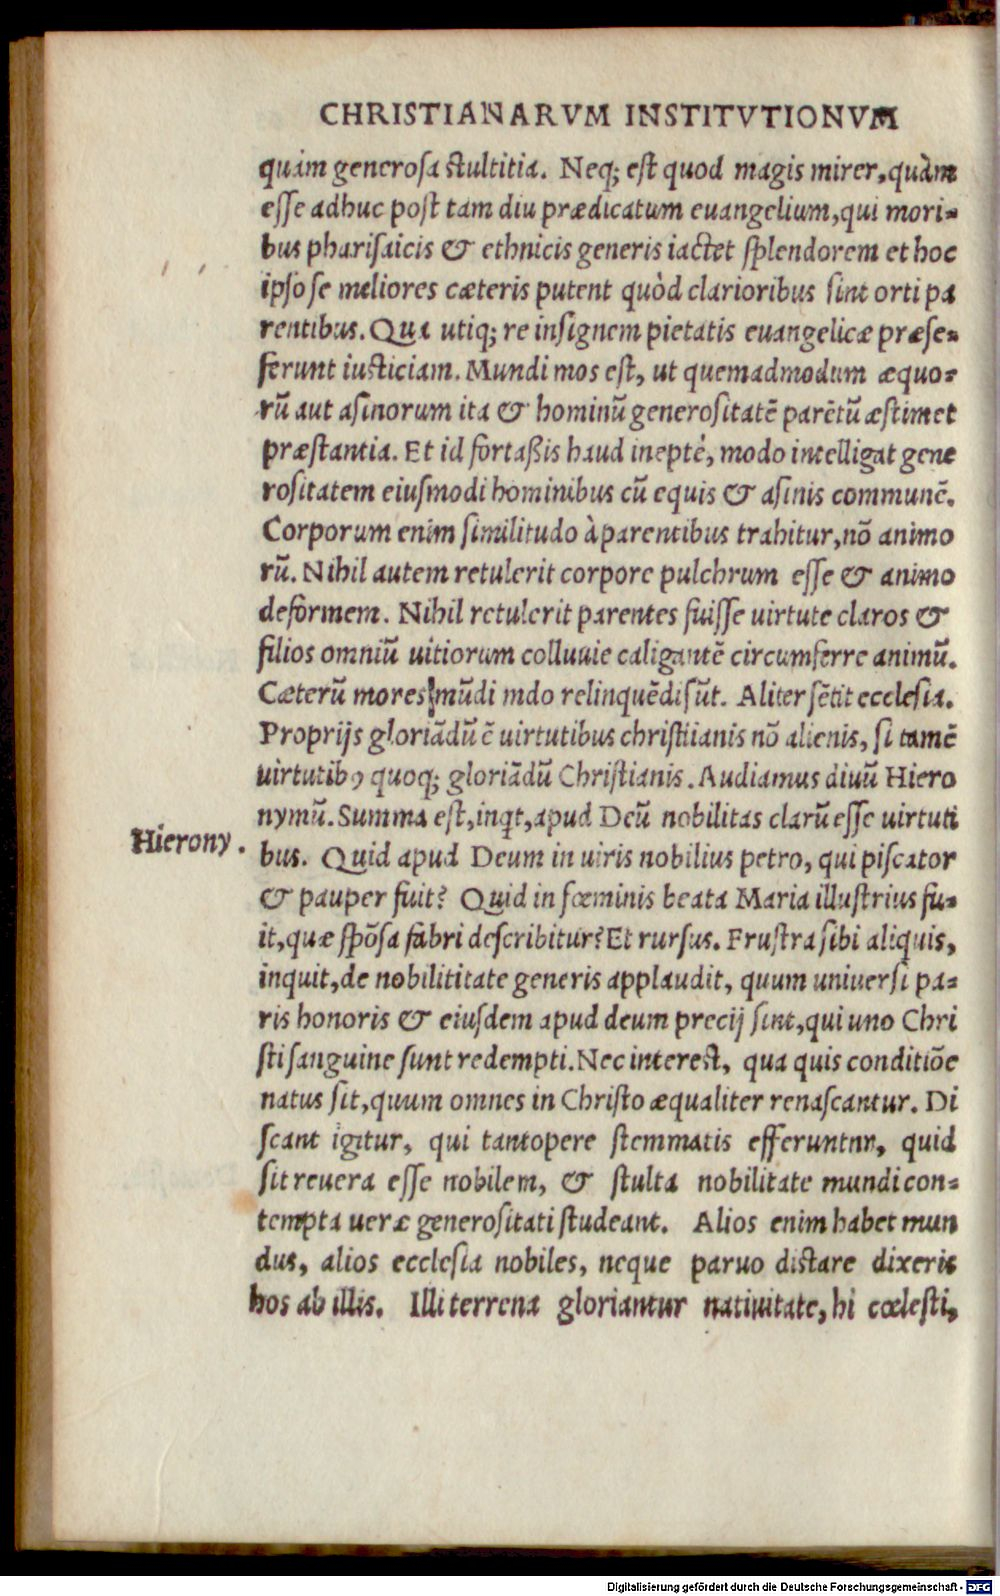 CHRISTIANARVM INSTITVTIONVM
quàm generosa stultitia. Neq; est quod magis mirer, quàm
esse adhuc post tam diu prædicatum euangelium, qui mori-
bus pharisaicis & ethnicis generis iactet splendorem et hoc
ipso se meliores cæteris putent quòd clarioribus sint orti pa
rentibus. Qua utiq; re insignem pietatis euangelicæ præse-
ferunt iusticiam. Mundi mos est, ut quemadmodum æquo-
rũ aut asinorum ita & hominũ generositatẽ parẽtũ æstimet
præstantia. Et id fortaßis haud ineptè, modo intelligat gene
rositatem eiusmodi hominibus cũ equis & asinis communẽ.
Corporum enim similitudo à parentibus trahitur, nõ animo
rũ. Nihil autem retulerit corpore pulchrum esse & animo
deformem. Nihil retulerit parentes fuisse uirtute claros &
filios omniũ uitiorum colluuie caligantẽ circumferre animũ.
Cæterũ mores mũdi mdo relinquẽdi sũt. Aliter sẽtit ecclesia.
Proprijs gloriãdũ ẽ uirtutibus christiianis nõ alienis, si tamẽ
uirtutibꝰ quoq; gloriãdũ Christianis. Audiamus diuũ Hiero
nymũ. Summa est, inqt, apud Deũ nobilitas clarũ esse uirtuti
Hierony.
bus. Quid apud Deum in uiris nobilius petro, qui piscator
& pauper fuit? Quid in fœminis beata Maria illustrius fu-
it, quæ spõsa fabri describitur? Et rursus. Frustra sibi aliquis,
inquit, de nobilititate generis applaudit, quum uniuersi pa-
ris honoris & eiusdem apud deum precij sint, qui uno Chri
sti sanguine sunt redempti. Nec interest, qua quis conditiõe
natus sit, quum omnes in Christo æqualiter renascantur. Di
scant igitur, qui tantopere stemmatis efferuntnr, quid
sit reuera esse nobilem, & stulta nobilitate mundi con-
tempta ueræ generositati studeant. Alios enim habet mun
dus, alios ecclesia nobiles, neque paruo distare dixeris
hos ab illis. Illi terrena gloriantur natiuitate, hi cœlesti,
Digitalisierung gefördert durch die Deutsche Forschungsgemeinschaft - DFG